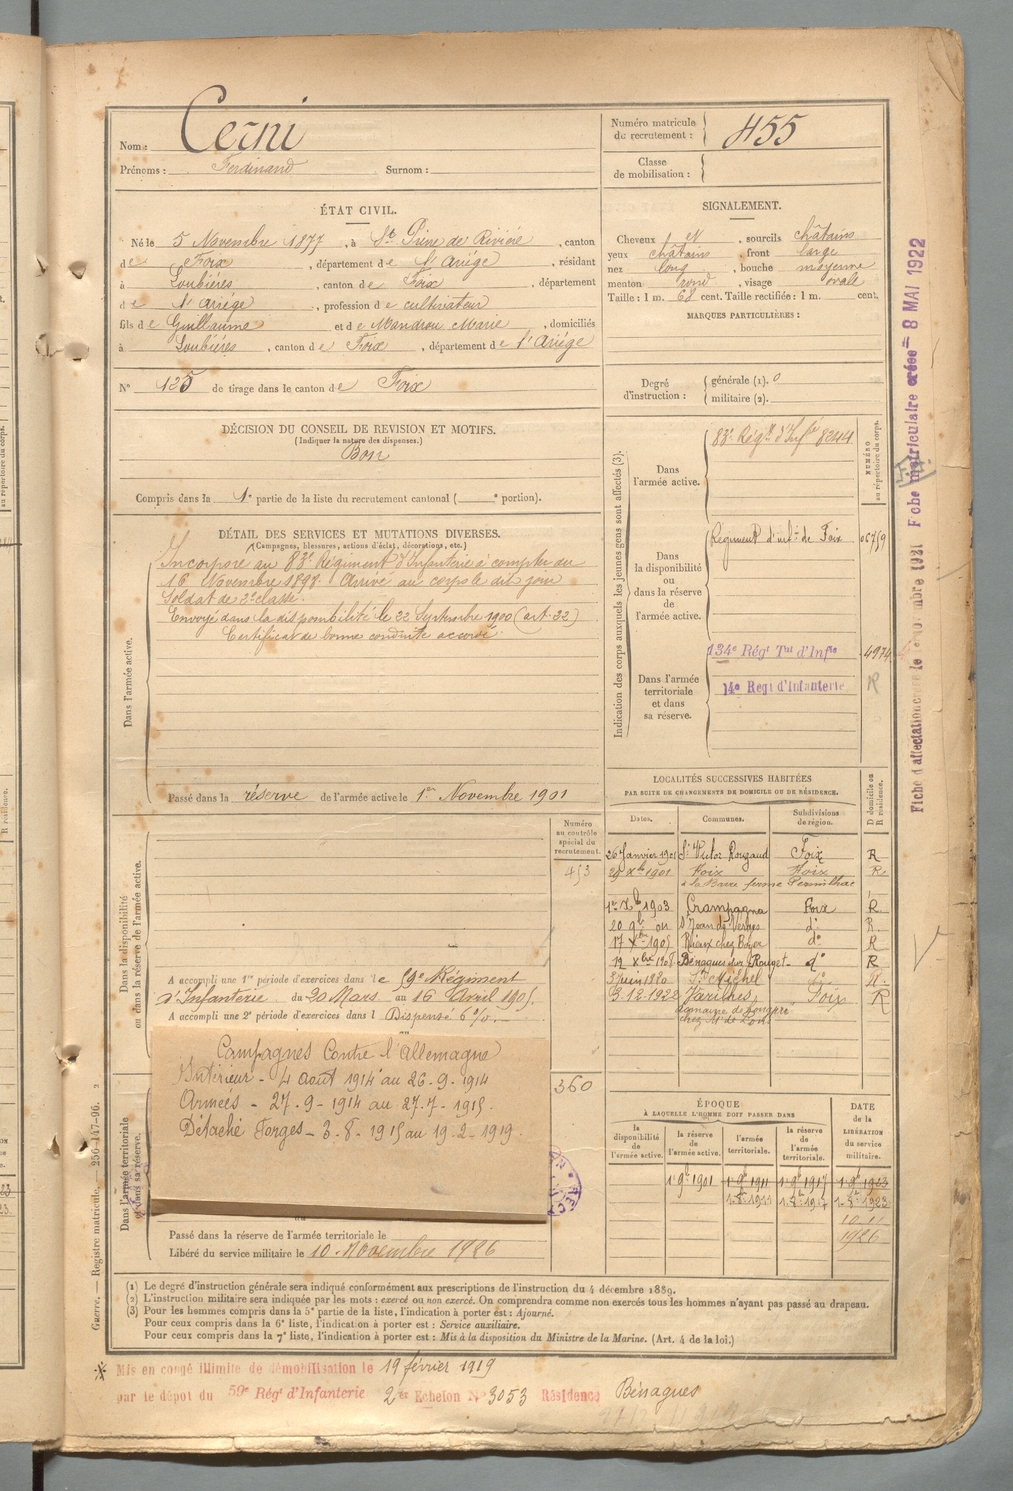 Nom : Cerni
Prénoms : Ferdinand Surnom :
Numéro matricule du recrutement : 455
Classe de mobilisation :
ÉTAT CIVIL.
Né le 5 Novembre 1877, à St Pierre de Rivière, canton
de Foix, département de l'Ariége, résidant
à Loubières, canton de Foix, département
de l'Ariége, profession de cultivateur
fils de Guillaume et de Mandrou Marie, domiciliés
à Loubières, canton de Foix, département de l'Ariége
N° 125 de tirage dans le canton de Foix
SIGNALEMENT.
Cheveux et sourcils châtains
yeux châtains, front large
nez long, bouche moyenne
menton rond, visage ovale
Taille : 1 m. 68 cent. Taille rectifiée : 1 m. cent.
MARQUES PARTICULIÈRES :
Degré d'instruction : générale (1). 0
militaire (2).
DÉCISION DU CONSEIL DE REVISION ET MOTIFS.
(Indiquer la nature des dispenses.)
Bon
Compris dans la 1e partie de la liste du recrutement cantonal ( e portion).
DÉTAIL DES SERVICES ET MUTATIONS DIVERSES.
(Campagnes, blessures, actions d'éclat, décorations, etc.)
Dans l'armée active.
Incorporé au 83e Régiment d'Infanterie à compter du
16 Novembre 1898. Arrivé au corps le dit jour
Soldat de 2e classe.
Envoyé dans la disponibilité le 22 Septembre 1900 (art. 32)
Certificat de bonne conduite accordé.
Passé dans la réserve de l'armée active le 1er Novembre 1901
Indication des corps auxquels les jeunes gens sont affectés (3).
NUMÉRO au répertoire du corps.
Dans l'armée active.
83e Régt d'Infie 8244
Dans la disponibilité ou dans la réserve de l'armée active.
Régiment d'infie de Foix 05759
Dans l'armée territoriale et dans sa réserve.
134e Régt Tal d'Infie 4974
14e Regt d'Infanterie R
Fiche matriculaire créée = 8 MAI 1922
LOCALITÉS SUCCESSIVES HABITÉES
PAR SUITE DE CHANGEMENTS DE DOMICILE OU DE RÉSIDENCE.
Dates. Communes. Subdivisions de région. D domicile ou R résidence.
26 Janvier 1901 St Victor Rouzaud Foix R
29 Xbre 1901 Foix Foix R
à la Barre ferme
1er Xb 1903 Crampagna Foix R
20 9b St Jean de Verges do R
17 Xbre 1905 Rieux chez Boyer do R
12 Xbre 1908 Bénagues sur Rouget do R
St Michel R
3.12.1922 Varilhes Foix R
domaine de
chez Mr de
Numéro au contrôle spécial du recrutement.
453
Dans la disponibilité ou dans la réserve de l'armée active.
A accompli une 1re période d'exercices dans le 59e Régiment
d'Infanterie du 20 Mars au 16 Avril 1905.
A accompli une 2e période d'exercices dans l Dispensé 6 %
Campagnes Contre l'Allemagne
Intérieur - 4 août 1914 au 26-9-1914
Armées - 27-9-1914 au 27-7-1915
Détaché Forges - 3-8-1915 au 19-2-1919
360
Dans l'armée territoriale et dans sa réserve.
Passé dans la réserve de l'armée territoriale le
Libéré du service militaire le 10 Novembre 1926
ÉPOQUE
À LAQUELLE L'HOMME DOIT PASSER DANS
la disponibilité de l'armée active. la réserve de l'armée active. l'armée territoriale. la réserve de l'armée territoriale.
DATE de la LIBÉRATION du service militaire.
1-9b 1901 1-9b 1911 1-9b 1917 1-9b 1923
1-8r 1911 1-8r 1917 1-8r 1923
10-11
1926
Guerre. — Registre matricule. — 256-147-96. 2
(1) Le degré d'instruction générale sera indiqué conformément aux prescriptions de l'instruction du 4 décembre 1889.
(2) L'instruction militaire sera indiquée par les mots : exercé ou non exercé. On comprendra comme non exercés tous les hommes n'ayant pas passé au drapeau.
(3) Pour les hommes compris dans la 5e partie de la liste, l'indication à porter est : Ajourné.
Pour ceux compris dans la 6e liste, l'indication à porter est : Service auxiliaire.
Pour ceux compris dans la 7e liste, l'indication à porter est : Mis à la disposition du Ministre de la Marine. (Art. 4 de la loi.)
Mis en congé illimité de démobilisation le 19 février 1919
par le dépot du 59e Régt d'Infanterie 2e Echelon N° 3053 Résidence Bénagues